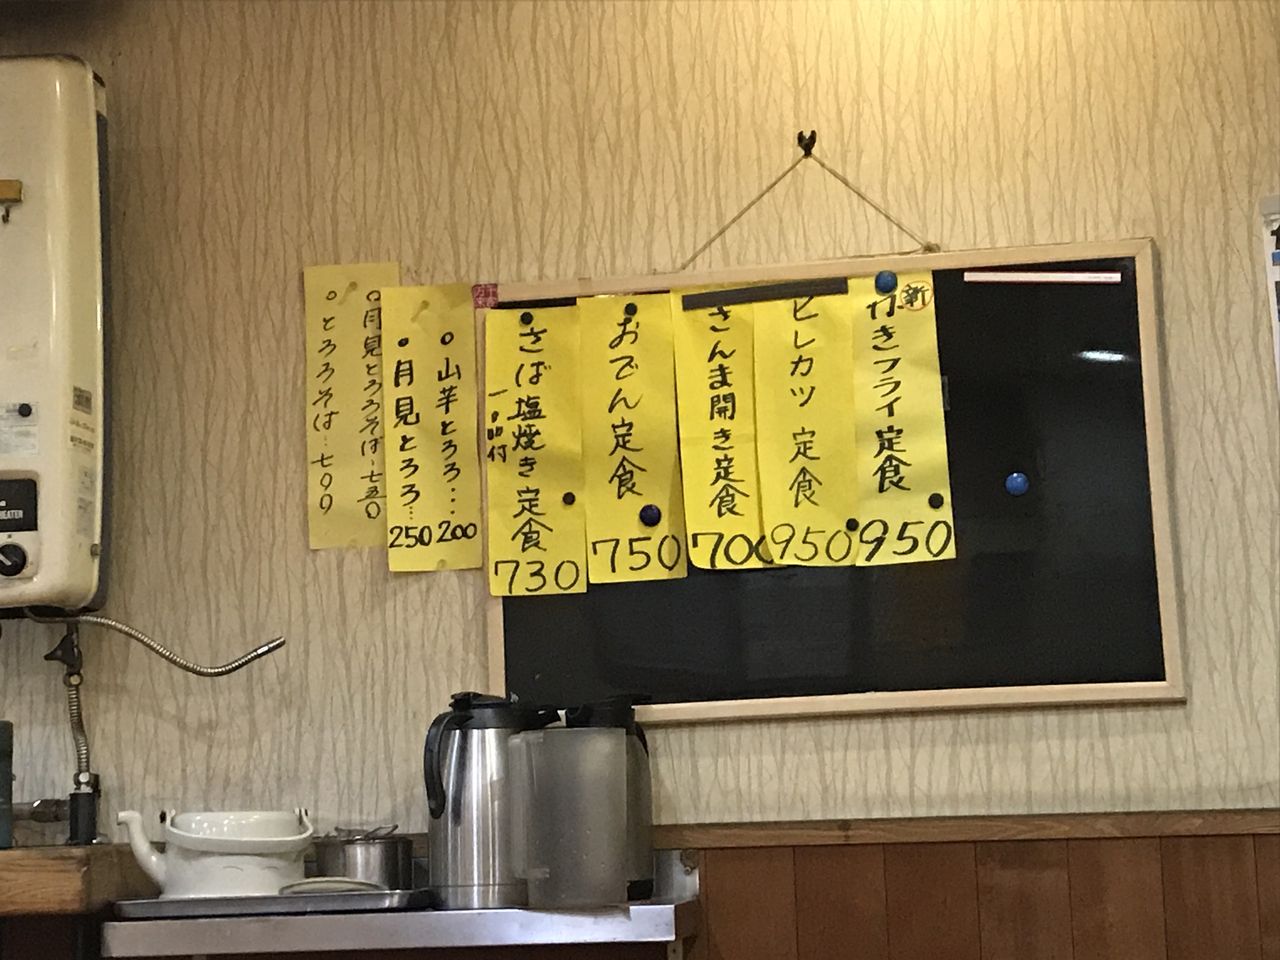 新
かきフライ定食
950
ヒレカツ定食
950
さんま開き定食
700
おでん定食
750
さば塩焼き定食
730
○山芋とろろ…
200
●月見とろろ…
250
○月見とろろそば…七五〇
○とろろそば…七〇〇